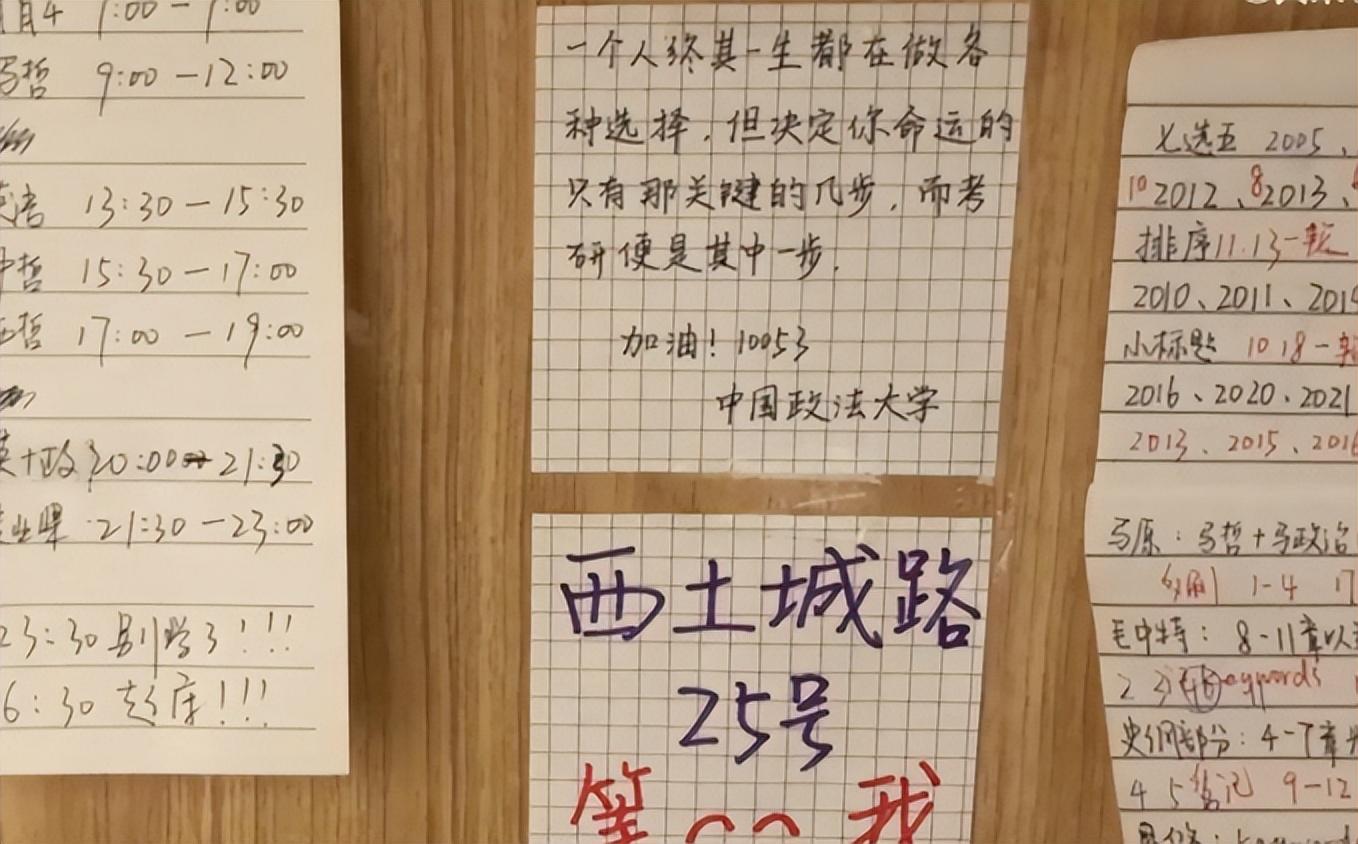 9:00 — 12:00
13:30 — 15:30
15:30 — 17:00
17:00 — 19:00
20:00 21:30
21:30 — 23:00
23:30 别学了!!!
6:30 起床!!!
一个人终其一生都在做各
种选择，但决定你命运的
只有那关键的几步，而考
研便是其中一步.
加油! 10053
中国政法大学
西土城路
25号
等 我
七选五 2005、
10 2012、8 2013、
排序 11.13-
2010、2011、2014
小标题 10 18-
2016、2020、2021
2013、2015、2016
马原: 马哲+马政治
1-4 17
毛中特: 8-11章以
2 3 keywords
史纲部分: 4-7章
4 5 笔记 9-12